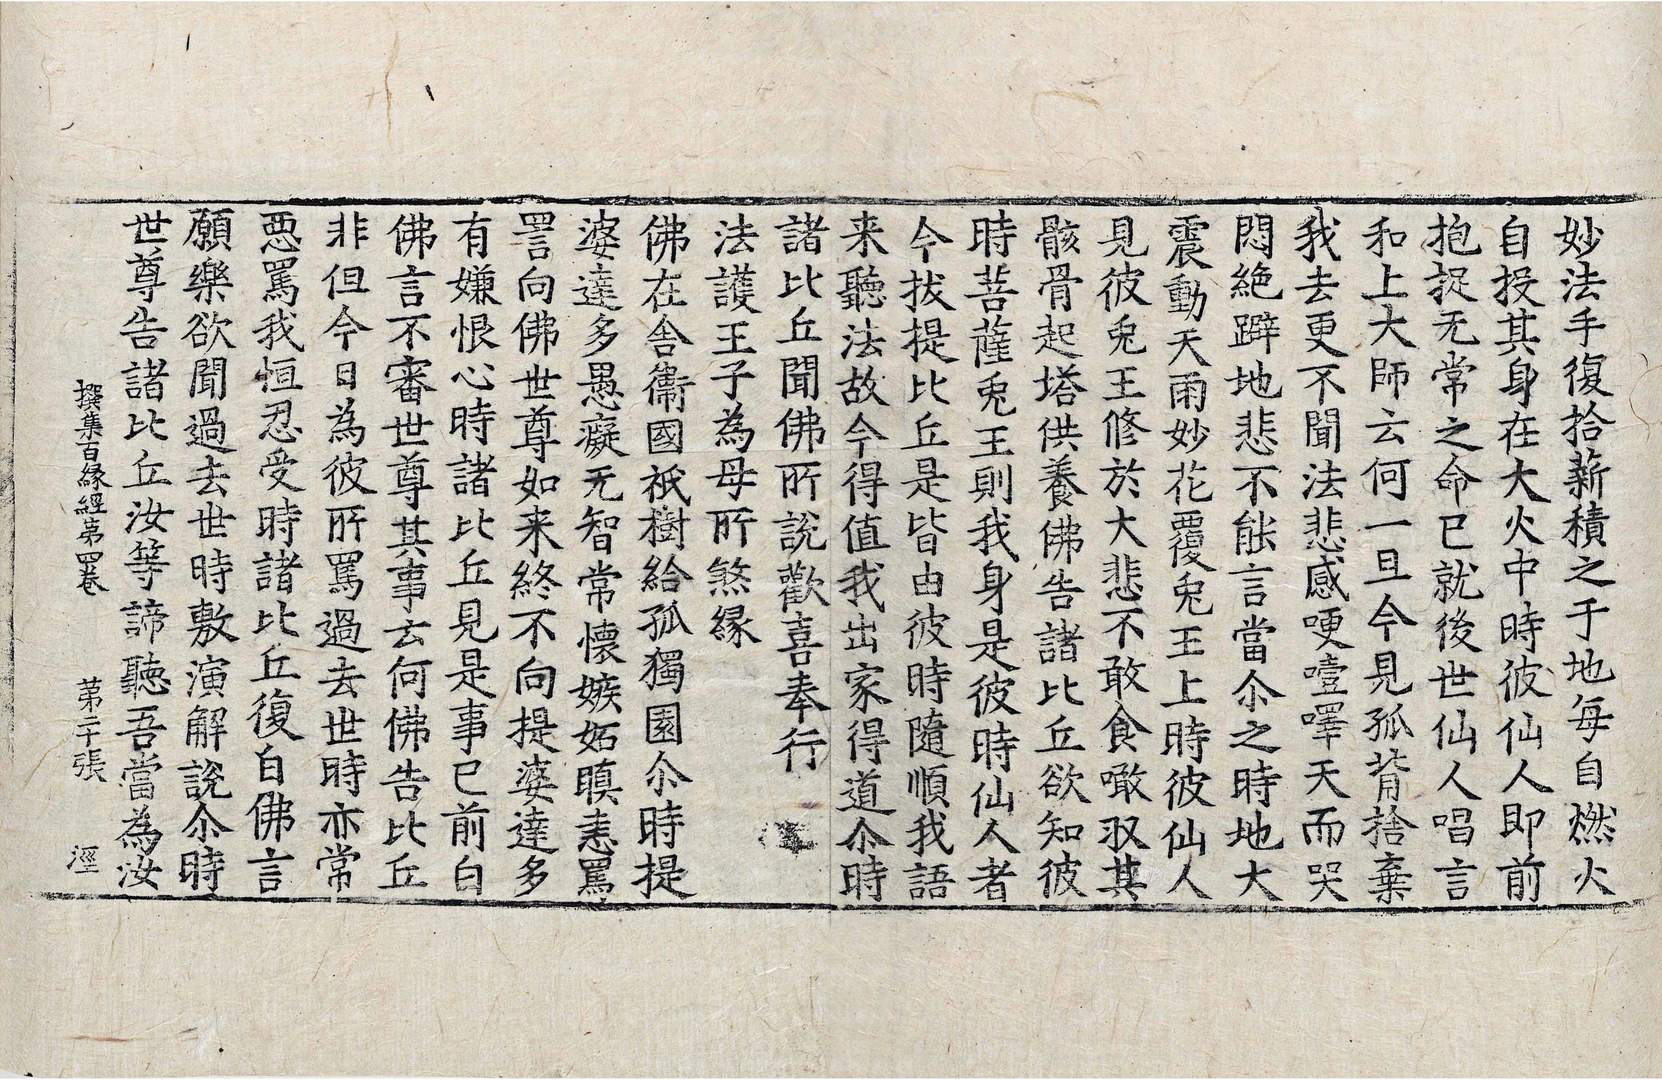 妙法手復拾薪積之于地每自燃火
自投其身在大火中時彼仙人即前
抱捉无常之命已就後世仙人唱言
和上大師云何一旦今見孤背捨棄
我去更不聞法悲感哽噎㘁天而哭
悶絶躃地悲不能言當尒之時地大
震動天雨妙花覆兎王上時彼仙人
見彼兎王修於大悲不敢食噉収其
骸骨起塔供養佛告諸比丘欲知彼
時菩薩兎王則我身是彼時仙人者
今拔提比丘是皆由彼時隨順我語
来聽法故今得值我出家得道尒時
諸比丘聞佛所說歡喜奉行
法護王子為母所煞縁
佛在舎衞國祇樹給孤獨園尒時提
婆達多愚癡无智常懷嫉妬瞋恚罵
詈向佛世尊如来終不向提婆達多
有嫌恨心時諸比丘見是事已前白
佛言不審世尊其事云何佛告比丘
非但今日為彼所罵過去世時亦常
惡罵我恒忍受時諸比丘復白佛言
願樂欲聞過去世時敷演解說尒時
世尊告諸比丘汝等諦聽吾當為汝
撰集百縁經第四卷 第二十張 涇